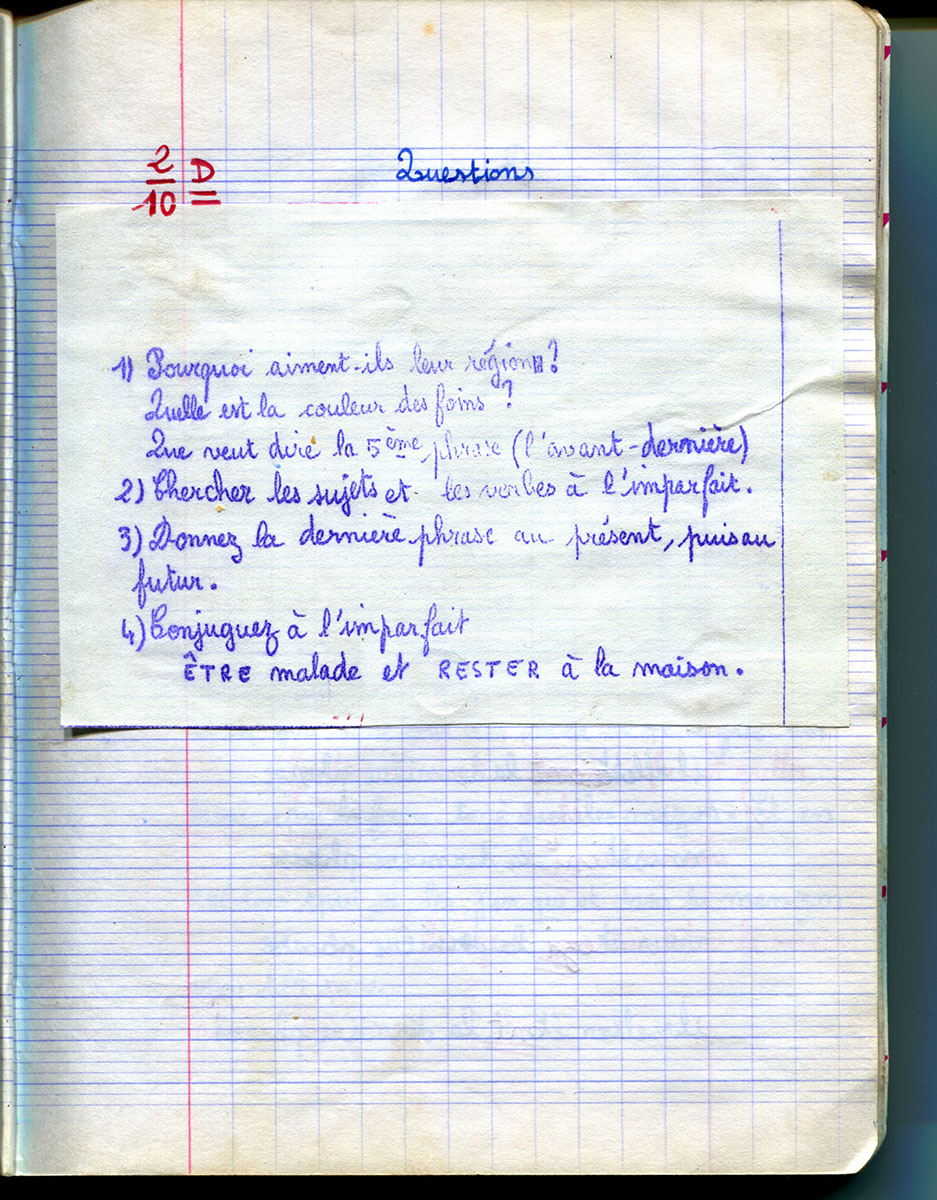 2/10 D
Questions
1) Pourquoi aiment-ils leur région ?
Quelle est la couleur des foins ?
Que veut dire la 5ème phrase (l'avant-dernière)
2) Chercher les sujets et les verbes à l'imparfait.
3) Donnez la dernière phrase au présent, puis au
futur.
4) Conjuguez à l'imparfait
ÊTRE malade et RESTER à la maison.